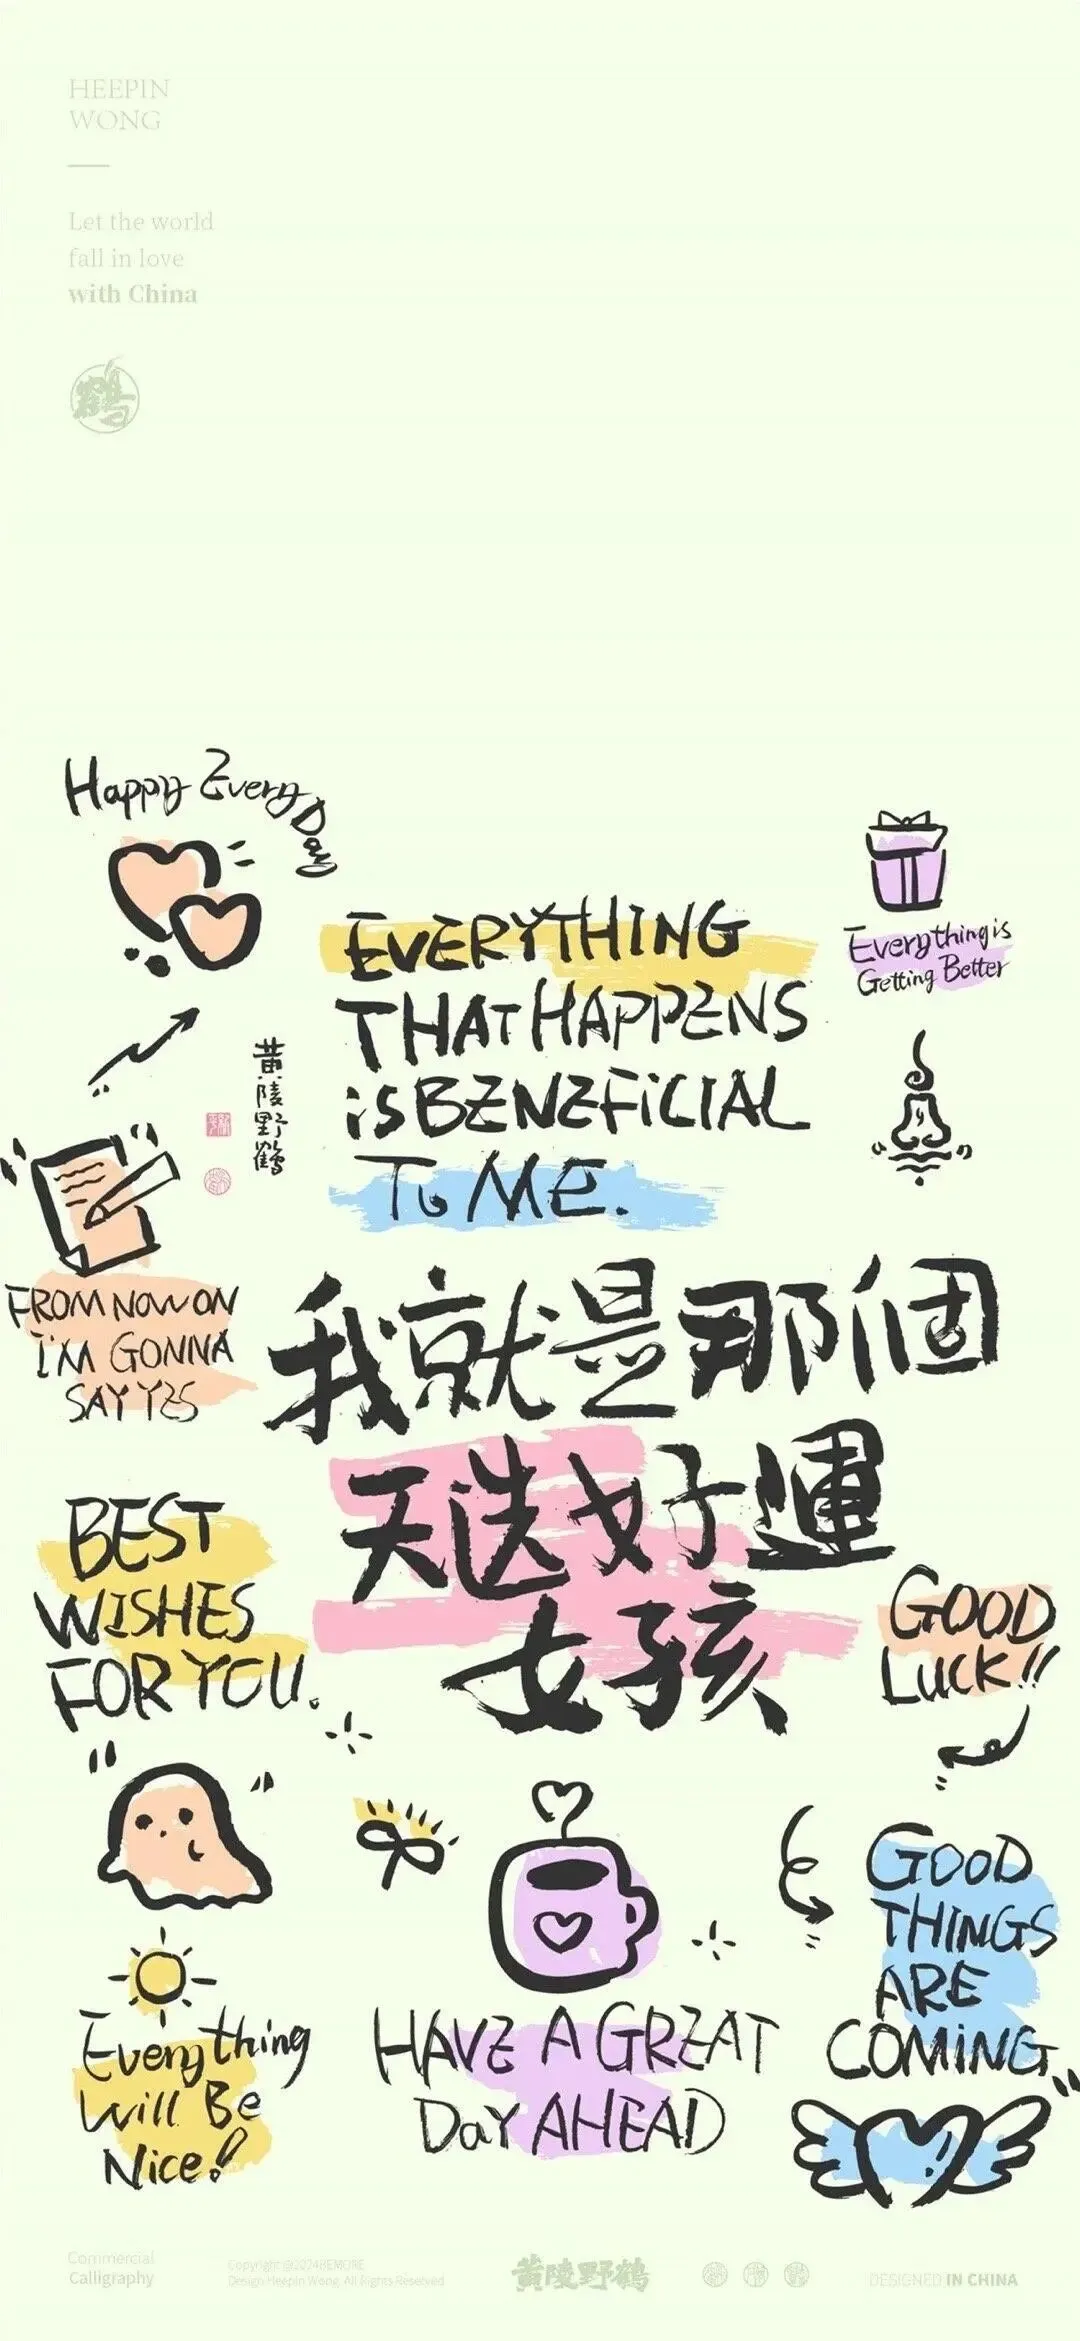 HEEPIN
WONG
Let the world
fall in love
with China
鹤
Happy Every Day
EVERYTHING
THAT HAPPENS
is BENEFiCIAL
To ME.
Everything is
Getting Better
黄陵野鹤
FROM NOW ON
I'M GONNA
SAY YES
我就是那個
天选好運
女孩
BEST
WISHES
FOR YOU.
GOOD
LUCK!!
GOOD
THINGS
ARE
COMiNG
Everything
Will Be
Nice!
HAVE A GREAT
DaY AHEAD
Commercial
Calligraphy
Copyright @2024 BEMORE
Design Heepin Wong. All Rights Reserved
黄陵野鶴
DESIGNED IN CHINA